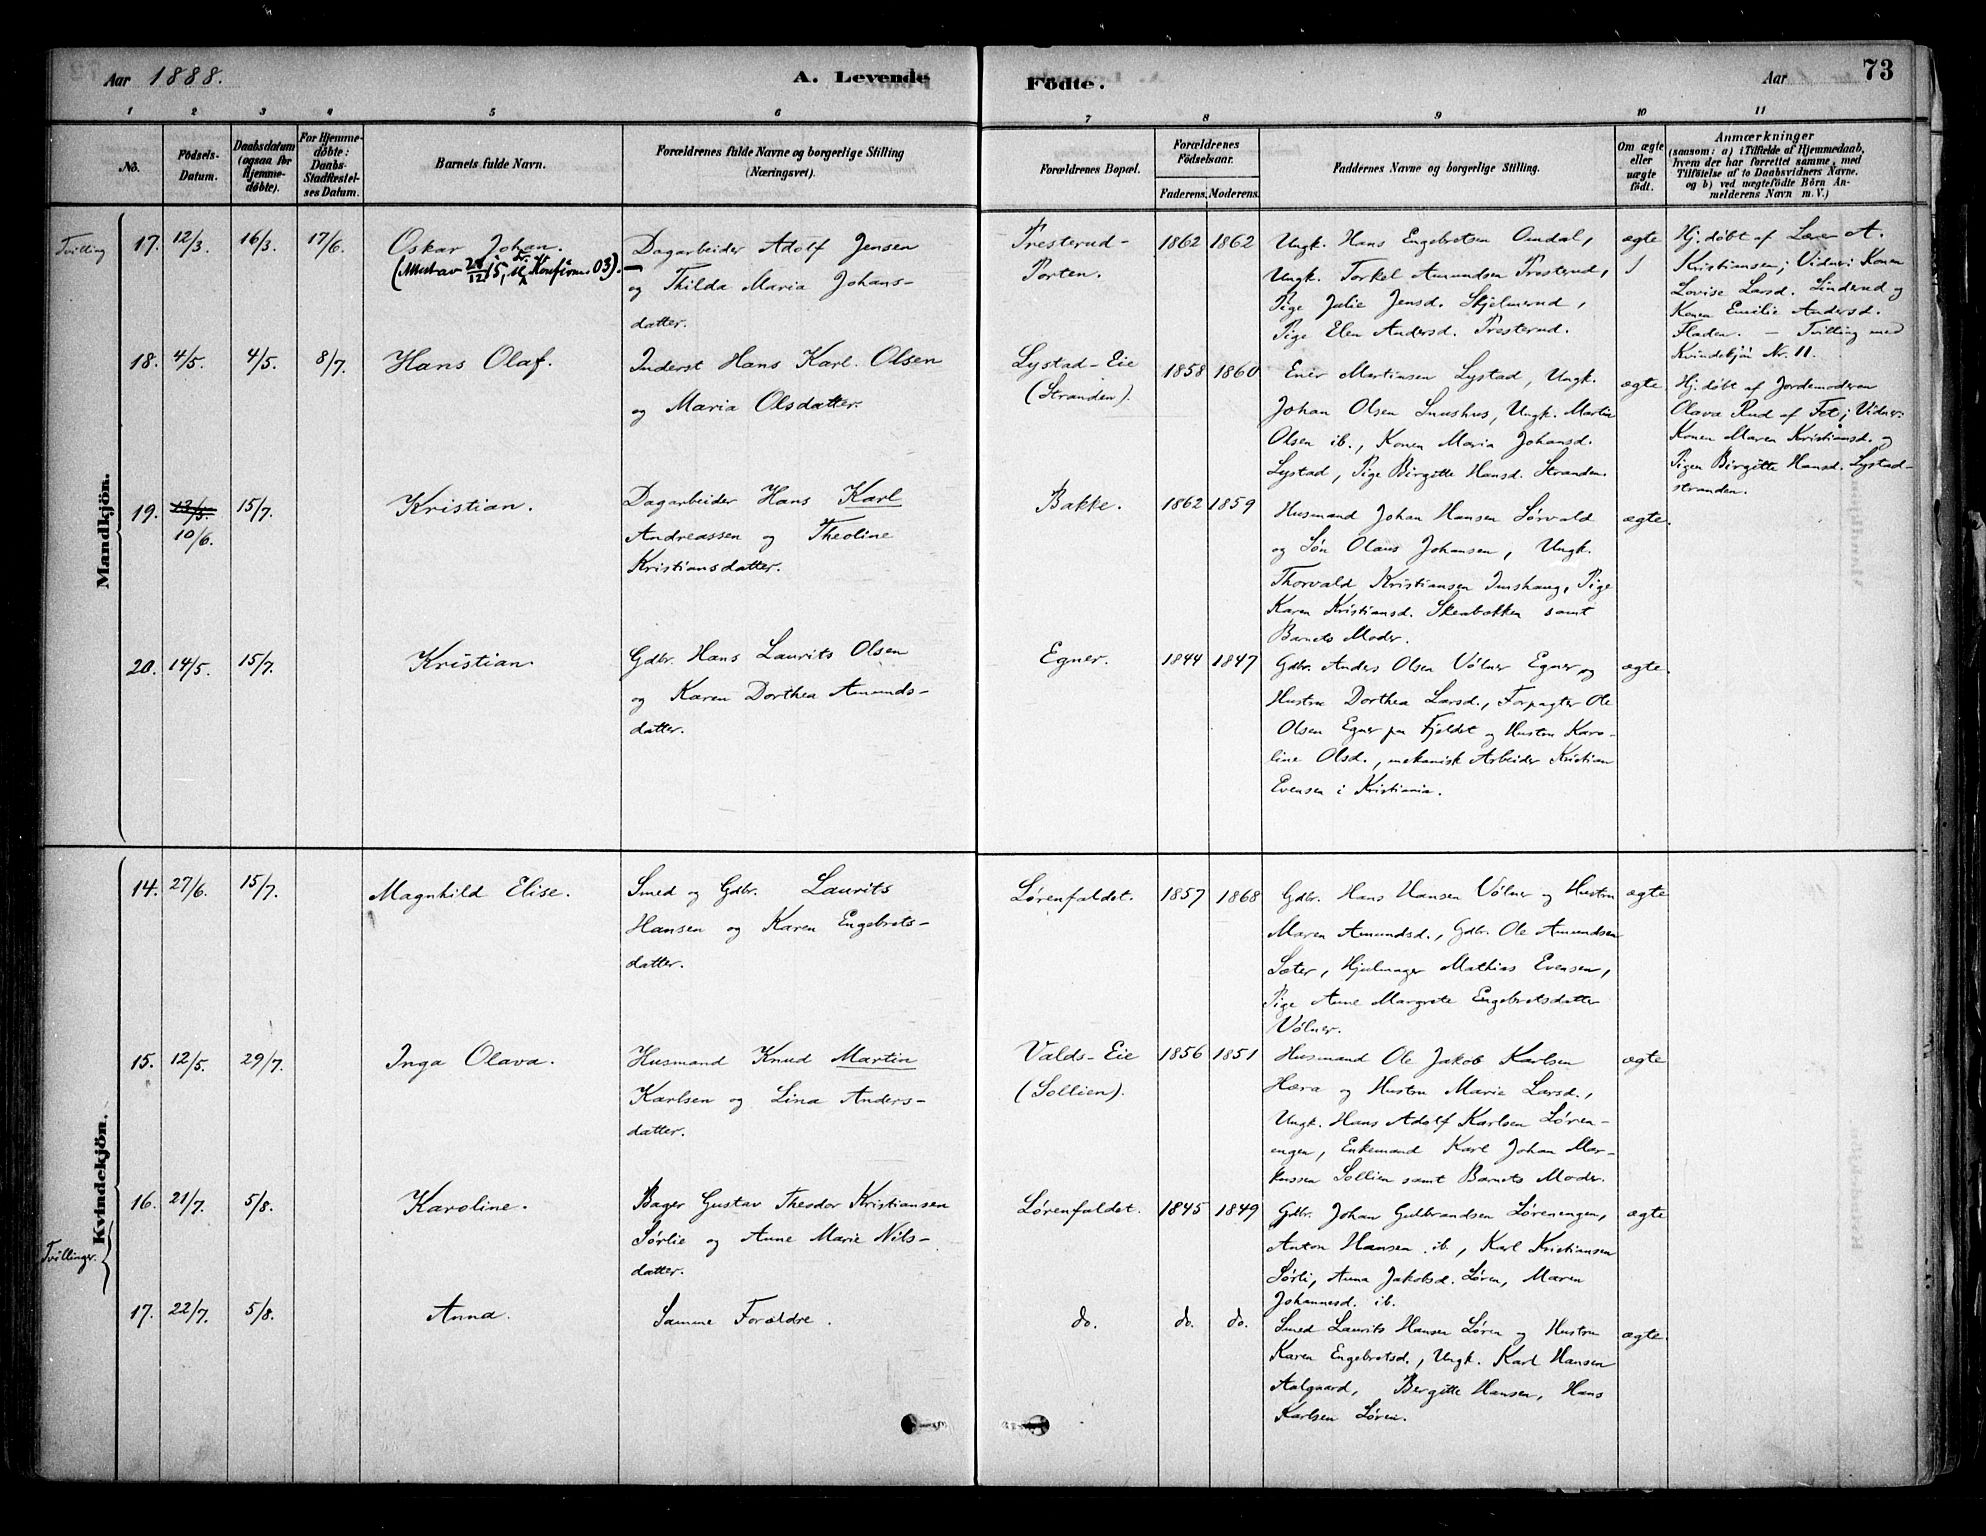 Aar 1888.
A. Levende
Födte.
Aar
73
1 2 3 4 5 6 7 8 9 10 11
No.
Födsels-
Datum.
Daabsdatum
(ogsaa for
Hjemme-
døbte):
For Hjemme-
døbte:
Daabs-
Stadfæstel-
ses Datum.
Barnets fulde Navn.
Forældrenes fulde Navne og borgerlige Stilling
(Næringsvei).
Forældrenes Bopæl.
Forældrenes
Födselsaar.
Faderens. Moderens.
Faddernes Navne og borgerlige Stilling.
Om ægte
eller
uægte
födt.
Anmærkninger
(saasom: a) i Tilfælde af Hjemmedaab,
hvem der har forrettet samme, med
Tilföielse af to Daabsvidners Navne.
og b) ved uægtefödte Börn An-
melderens Navn m. V.)
Mandkjön.
Tvilling
17. 12/3. 16/3. 17/6.
Oskar Johan.
Dagarbeider Adolf Jensen
og Thilda Maria Johans-
datter.
Presterud-
Porten.
1862 1862
Ungk. Hans Engebretsen Omdal,
Ungk. Torkel Amundsen Presterud,
Pige Julie Jensd. Skjelmerud,
Pige Elen Andersd. Presterud.
ægte
Hj. døbt af Lærer A.
Kristiansen; Vidner: Konen
Lovise Larsd. Linderud og
Konen Emilie Andersd.
Fladen. – Tvilling med
Kvindekjøn Nr. 11.
18. 4/5. 4/5. 8/7.
Hans Olaf.
Inderst Hans Karl Olsen
og Maria Olsdatter.
Lystad-Eie
(Stranden).
1858 1860
Ener Martinsen Lystad, Ungk.
Johan Olsen Snushus, Ungk. Martin
Olsen ib., Konen Maria Johansd.
Lystad, Pige Birgitte Hansd. Stranden.
ægte
Hj. døbt af Jordemoderen
Olava Rud af Fet; Vidner:
Konen Maren Kristiansd. og
Pigen Birgitte Hansd. Lystad-
stranden.
19. 10/6. 15/7.
Kristian.
Dagarbeider Hans Karl
Andreassen og Theoline
Kristiansdatter.
Bakke.
1862 1859
Husmand Johan Hansen Sørvald
og Søn Olaus Johansen, Ungk.
Thorvald Kristiansen Imshaug, Pige
Karen Kristiansd. Skeabakken samt
Barnets Moder.
ægte.
20. 14/5. 15/7.
Kristian.
Gdbr. Hans Laurits Olsen
og Karen Dorthea Amunds-
datter.
Egner.
1844 1847
Gdbr. Anders Olsen Vølner Egner, og
Hustru Dorthea Larsd., Forpagter Ole
Olsen Egner paa Fjeldet og Hustru Karo-
line Olsd., mekanisk Arbeider Kristian
Evensen i Kristiania.
ægte.
Kvindekjön.
14. 27/6. 15/7.
Magnhild Elise.
Smed og Gdbr. Laurits
Hansen og Karen Engebrets-
datter.
Lørenfaldet.
1857 1868
Gdbr. Hans Hansen Vølner og Hustru
Maren Amundsd., Gdbr. Ole Amundsen
Sæter, Hjulmager Mathias Evensen,
Pige Anne Margrete Engebretsdatter
Vølner.
ægte
15. 12/5. 29/7.
Inga Olava.
Husmand Knud Martin
Karlsen og Lina Anders-
datter.
Valds-Eie
(Sollien).
1856 1851
Husmand Ole Jakob Karlsen
Hæra og Hustru Marie Larsd.,
Ungk. Hans Adolf Karlsen Løren-
engen, Enkemand Karl Johan Mar-
kussen Sollien samt Barnets Moder.
ægte
Tvillinger.
16. 21/7. 5/8.
Karoline.
Bager Gustav Theodor Kristiansen
Sørlie og Anne Marie Nils-
datter.
Lørenfaldet.
1845 1849
Gdbr. Johan Gulbrandsen Løreningen,
Anton Hansen ib., Karl Kristiansen
Sørli, Anna Jakobsd. Løren, Maren
Johannesd. ib.
ægte
17. 22/7. 5/8.
Anna.
Samme Forældre.
do.
do. do.
Smed Laurits Hansen Løren og Hustru
Karen Engebretsd., Ungk. Karl Hansen
Aalgaard, Bergitte Hansen, Hans
Karlsen Løren.
ægte.